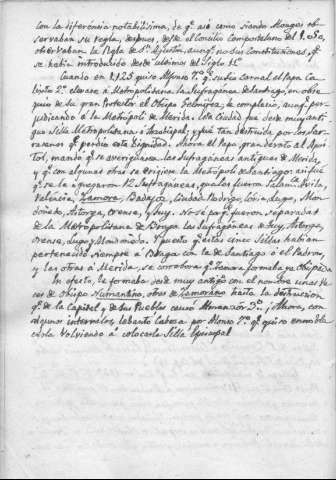 con la diferencia notabilísima, de qᵉ así como siendo Monges ob-
servaban su regla, despues, desde el Concilio Compostelano del 1.050,
observaban la Regla de Sⁿ Agustin, aunqᵉ no sus Constituciones, qᵉ
se habia introducido desde ultimos del Siglo 11º
Cuando en 1123 quiso Alfonso 7º qᵉ su tio carnal el Papa Ca-
listo 2º elevase á Metropolitana la Sufraganea de Santiago, en obse-
quio de su gran Protector el Obispo Gelmirez, le complació, aunqᵉ per-
judicando á la Metrópoli de Mérida. Esta Ciudad fue desde muy anti-
guo Silla Metropolitana ó Arzobispal, y qᵉ tan destruida por los Sar-
racenos qᵉ perdió esta Dignidad. Ahora el Papa, gran devoto al Apos-
tol, mandó qᵉ se averiguasen las Sufraganeas antiguas de Merida,
y qᵉ con algunas otras se erigiera la Metropoli de Santiago: asi fué
qᵉ se le agregaron 12 Sufraganeas, quales fueron Salamᵃ, Avila,
Palencia, Zamora, Badajoz, Ciudad-Rodrigo, Coria, Lugo, Mon-
doñedo, Astorga, Orense, y Tuy. No sé por qᵉ fueron separadas
de la Metropolitana de Braga las Sufraganeas de Tuy, Astorga,
Orense, Lugo y Mondoñedo. Y puesto qᵉ estas cinco Sillas habian
pertenecido siempre á Braga con la de Santiago ó el Padron,
y las otras á Mérida, se corrobora qᵉ Zamora formaba ya Obispado.
En efecto, le formaba desde muy antiguo con el nombre unas Ve-
ces de Obispo Numantino, otras de Zamorano hasta la destruccion
qᵉ de la Capital y de sus Pueblos causó Almanzor Dⁿ.; Ahora, con
algunos intervalos, levantó cabeza por Alonso 7º qᵉ quiso ennoble-
cerla volviendo á colocarla Silla Episcopal